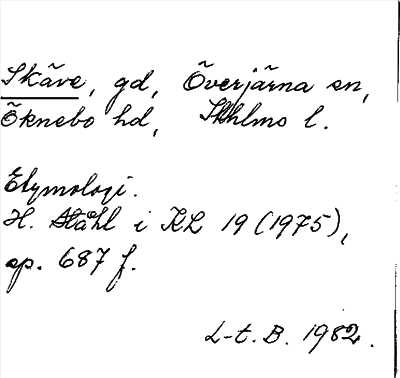 Skäve, gd, Överjärna sn,
Öknebo hd, Sthlms l.
Etymologi.
H. Ståhl i KL 19 (1975),
sp. 687 f.
L-t. B. 1982.